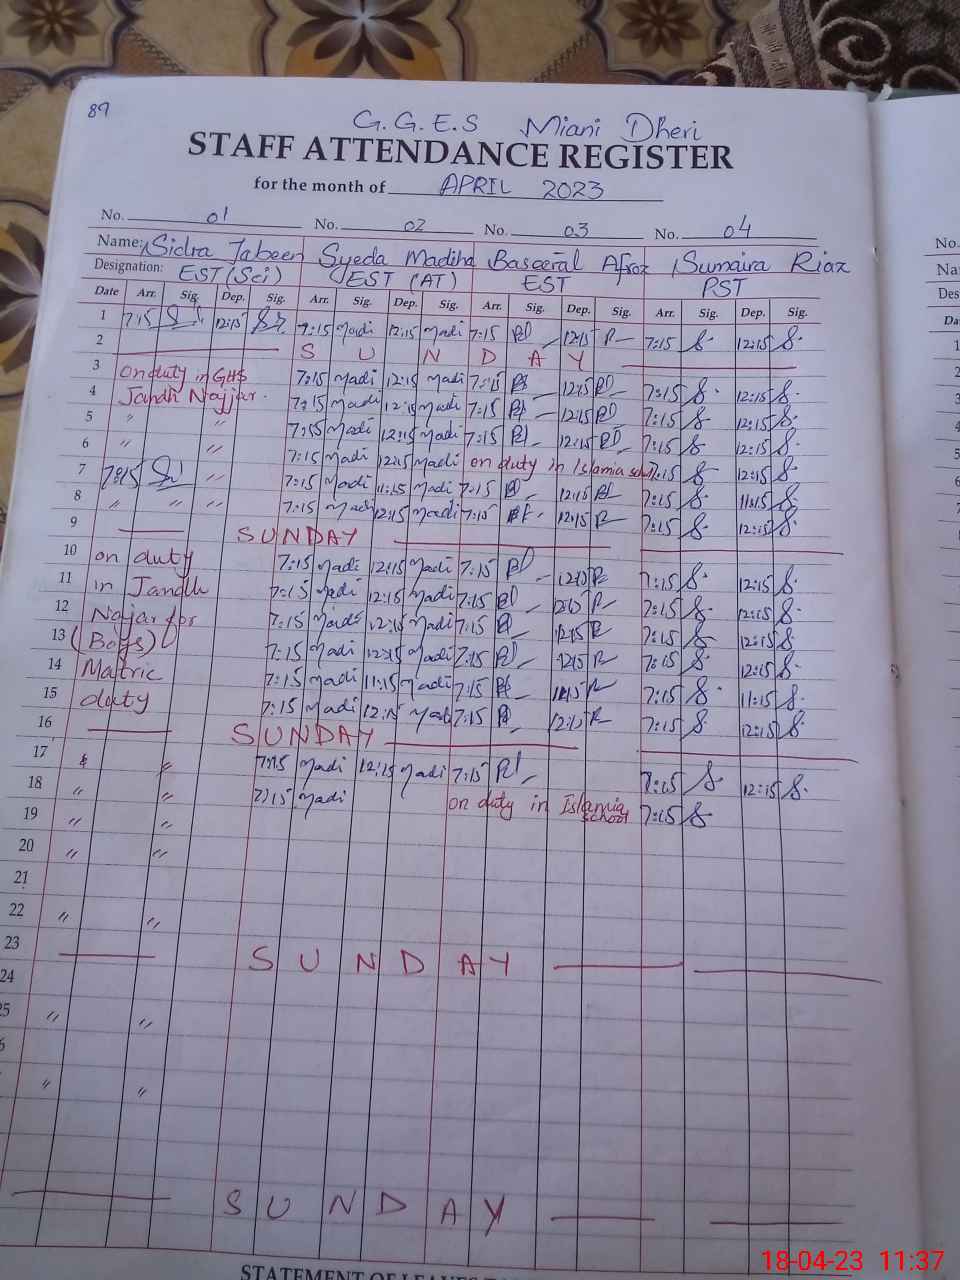 89
G.G.E.S Miani Dheri
STAFF ATTENDANCE REGISTER
for the month of APRIL 2023
No. 01 No. 02 No. 03 No. 04 No.
Name: Sidra Jabeen Syeda Madiha Baseerat Afroz Sumaira Riaz
Designation: EST (Sci) EST (AT) EST PST
Date Arr. Sig. Dep. Sig. Arr. Sig. Dep. Sig. Arr. Sig. Dep. Sig. Arr. Sig. Dep. Sig.
1 7:15 12:15 7:15 Madi 12:15 Madi 7:15 12:15 7:15 S. 12:15 S.
2 S U N D A Y
3 on duty in GHS 7:15 Madi 12:15 Madi 7:15 12:15 7:15 S. 12:15 S.
4 Jandh Najjar. 7:15 Madi 12:15 Madi 7:15 12:15 7:15 S. 12:15 S.
5 " " 7:15 Madi 12:15 Madi 7:15 12:15 7:15 S 12:15 S.
6 " " 7:15 Madi 12:15 Madi on duty in Islamia school 7:15 S 12:15 S
7 7:15 " 7:15 Madi 11:15 Madi 7:15 12:15 7:15 S. 11:15 S
8 " " " 7:15 Madi 12:15 Madi 7:15 12:15 7:15 S. 12:15 S.
9 SUNDAY
10 on duty 7:15 Madi 12:15 Madi 7:15 12:15 7:15 S. 12:15 S.
11 in Jandh 7:15 Madi 12:15 Madi 7:15 12:15 7:15 S. 12:15 S.
12 Najar for 7:15 Madi 12:15 Madi 7:15 12:15 7:15 S 12:15 S.
13 (Boys) 7:15 Madi 12:15 Madi 7:15 12:15 7:15 S. 12:15 S.
14 Matric 7:15 Madi 11:15 Madi 7:15 11:15 7:15 S. 11:15 S.
15 duty 7:15 Madi 12:15 Madi 7:15 12:15 7:15 S 12:15 S.
16 SUNDAY
17 " " 7:15 Madi 12:15 Madi 7:15 7:15 S 12:15 S.
18 " " 7:15 Madi on duty in Islamia school 7:15 S.
19 " "
20 " "
21
22 " "
23 S U N D A Y
24
25 " "
" "
S U N D A Y
STATEMENT OF
18-04-23 11:37